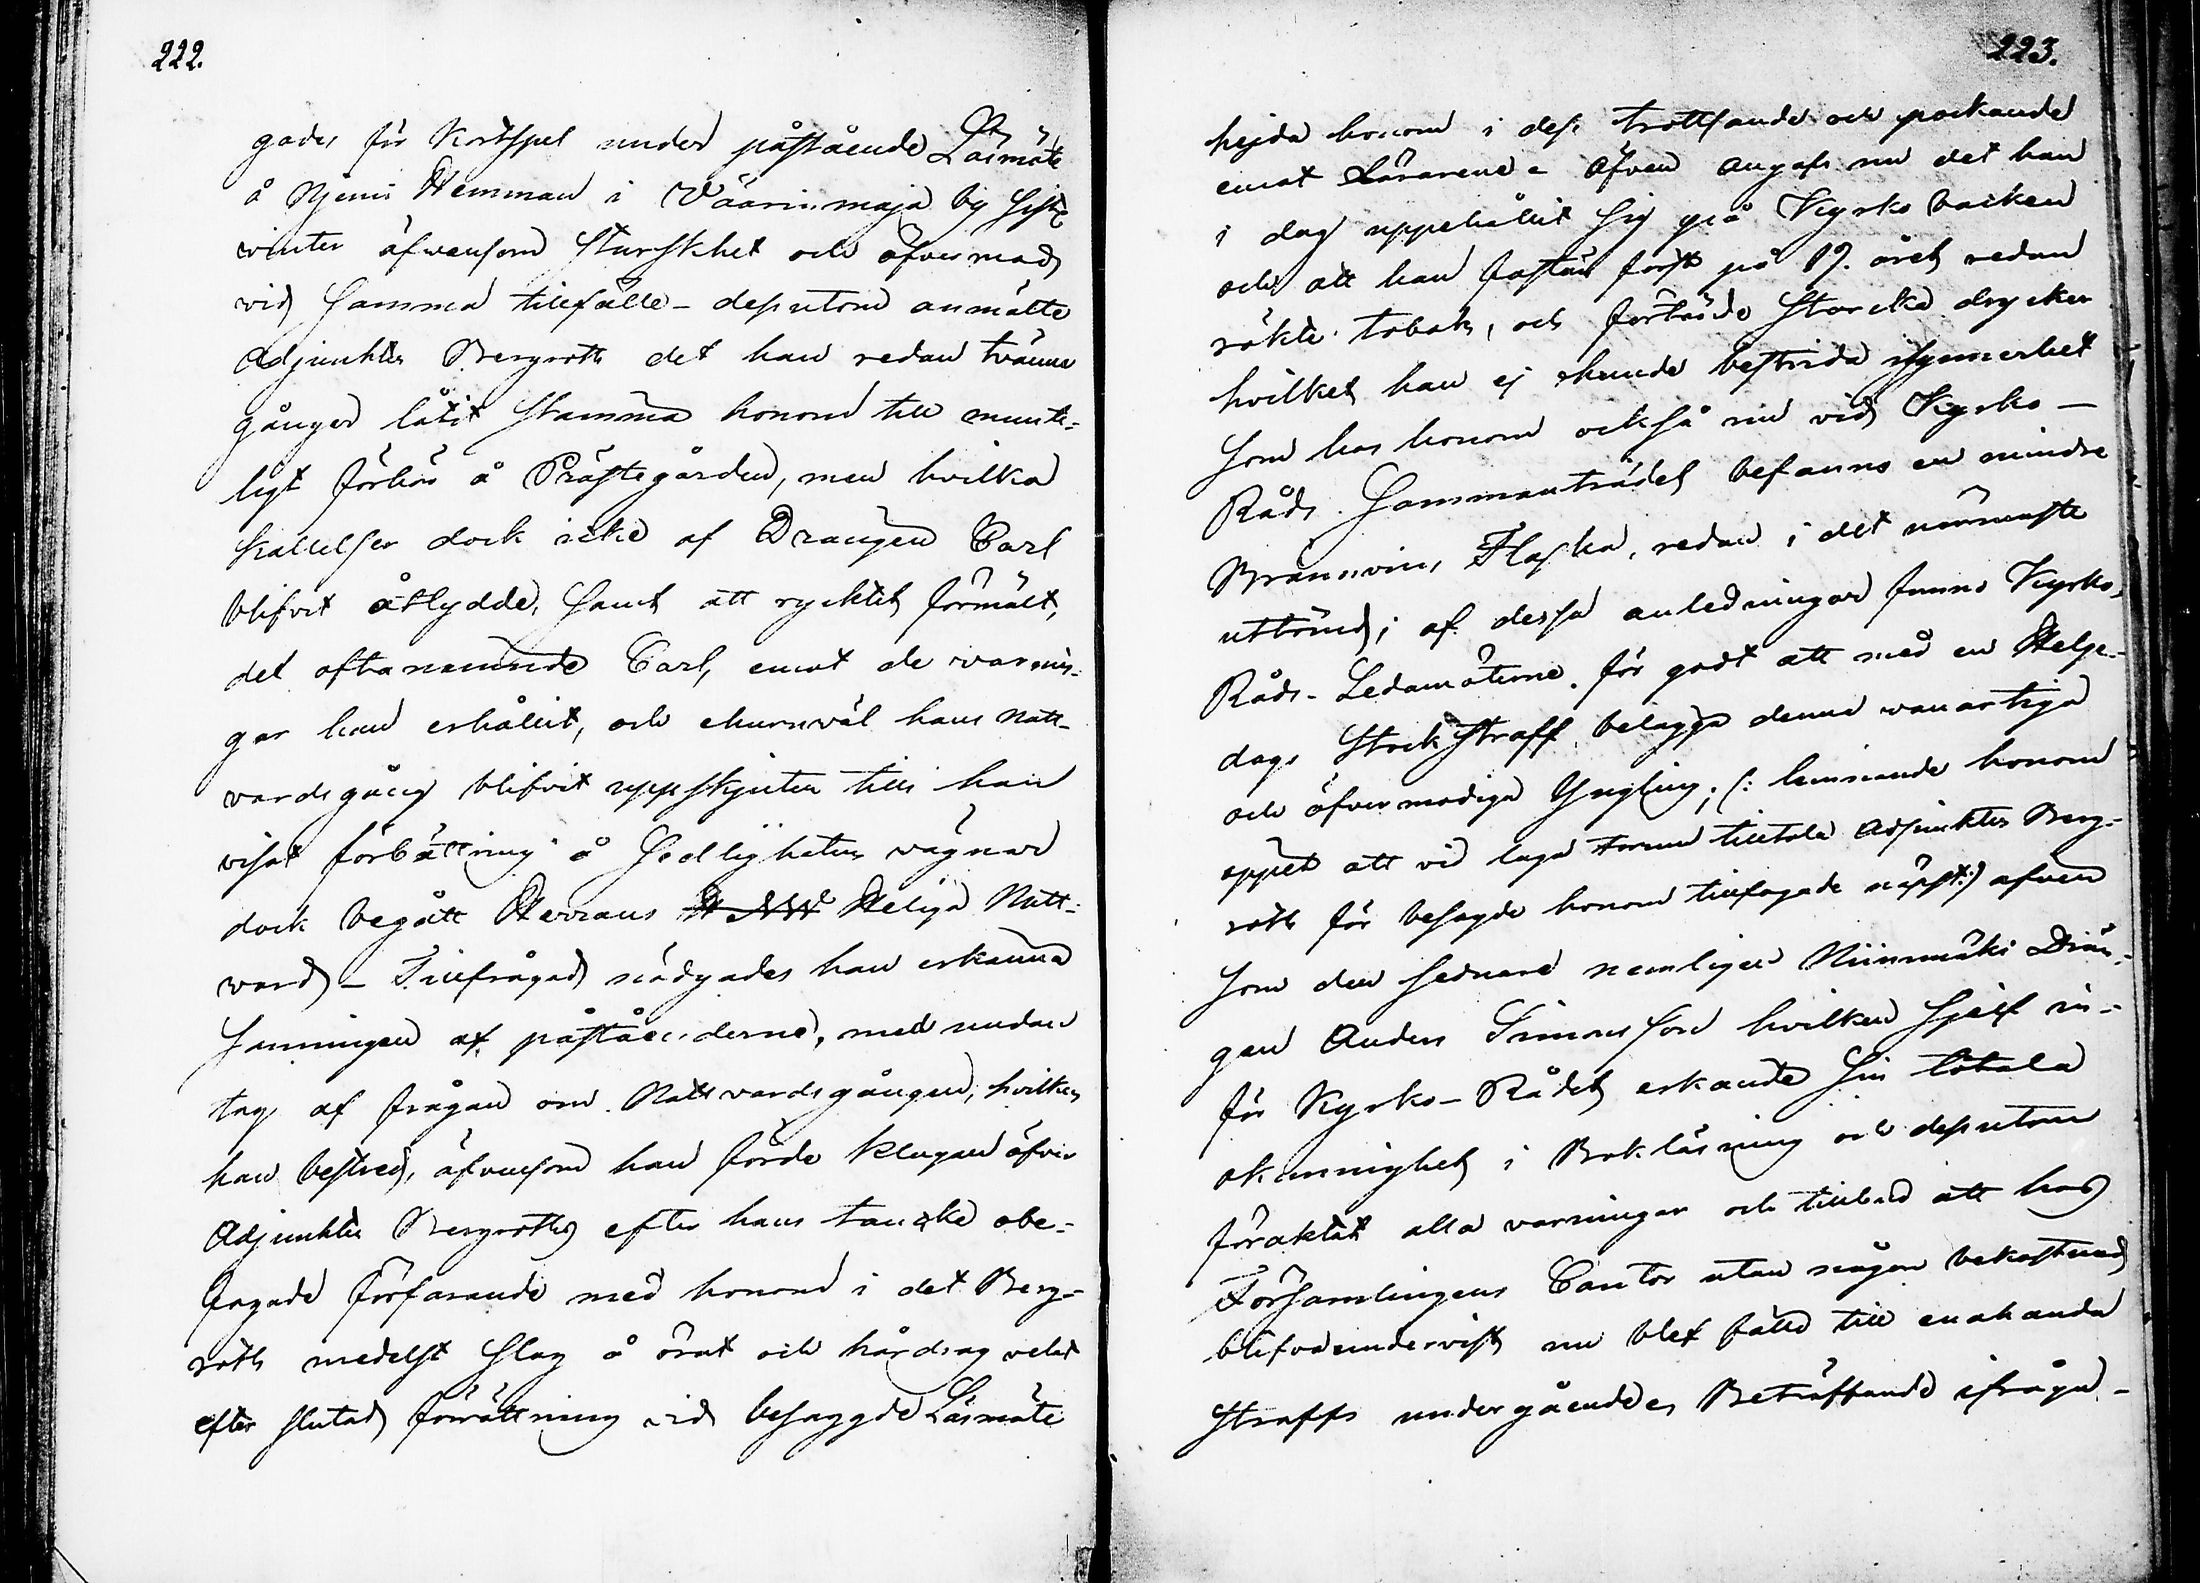 222.
gades för Kortspel under påstående Läsmöte
å Njemi Hemman i Väärinmaja by sistl.
vinter äfvensom sturskhet och öfvermod
vid samma tillfälle - dessutom anmälte
Adjunkten Bergroth det han redan tvänne
gånger låtit stamma honom till munte-
ligt förhör å Prästegården, men hvilka
kallelser dock icke af Drängen Carl
blifvit åtlydde, samt att ryktet förmält,
det oftanemnde Carl, emot de varnin-
gar han erhållit, och ehuruväl hans natt-
vardsgång blifvit uppskjuten tills han
visat förbättring å Sedlighetens vägnar
dock begått Herrans Heliga Natt-
vard - Tillfrågad nödgades han erkänna
sanningen af påståenderne, med undan
tag af frågan om Nattvardsgången, hvilken
han bestred, äfvensom han förde klagan öfver
Adjunkten Bergroths efter hans tanke obe-
fogade förfarande med honom i det Berg-
roth medelst slag å örat och hårdrag velat
efter slutad förrättning vid besagde Läsmöte
223.
hejda honom i dess trottsande och pockande
emot Lärarene - Äfven angafs nu det han
i dag uppehållit sig på Kyrko backen
och att han fastän först på 19. året redan
rökte tobak, och förtärde starcka drycker
hvilket han ej kunde bestrida isynnerhet
som hos honom också nu vid Kyrko-
Råds Sammanträdet befanns en mindre
Brännvins Flaska, redan i det närmaste
uttömd; af dessa anledningar funno Kyrko-
Råds-Ledamöterne för godt att med en Helge-
dags Stock straff belägga denne vanartiga
och öfvermodiga Yngling; (: lemnande honom
öppet att vid laga forum tilltala Adjunkten Berg-
roth för besagde honom tillfogade näpst:) äfven
som den sednare nemligen Niinimäki Drän-
gen Anders Simonsson hvilken sjelf in-
för Kyrko-Rådet erkände sin totala
okunnighet i Bokläsning och dessutom
föraktat alla varningar och tillbud att hos
Församlingens Cantor utan någon bekostnad
blifva undervist nu blef fälld till enahanda
straffs undergående, Beträffande ifråga-